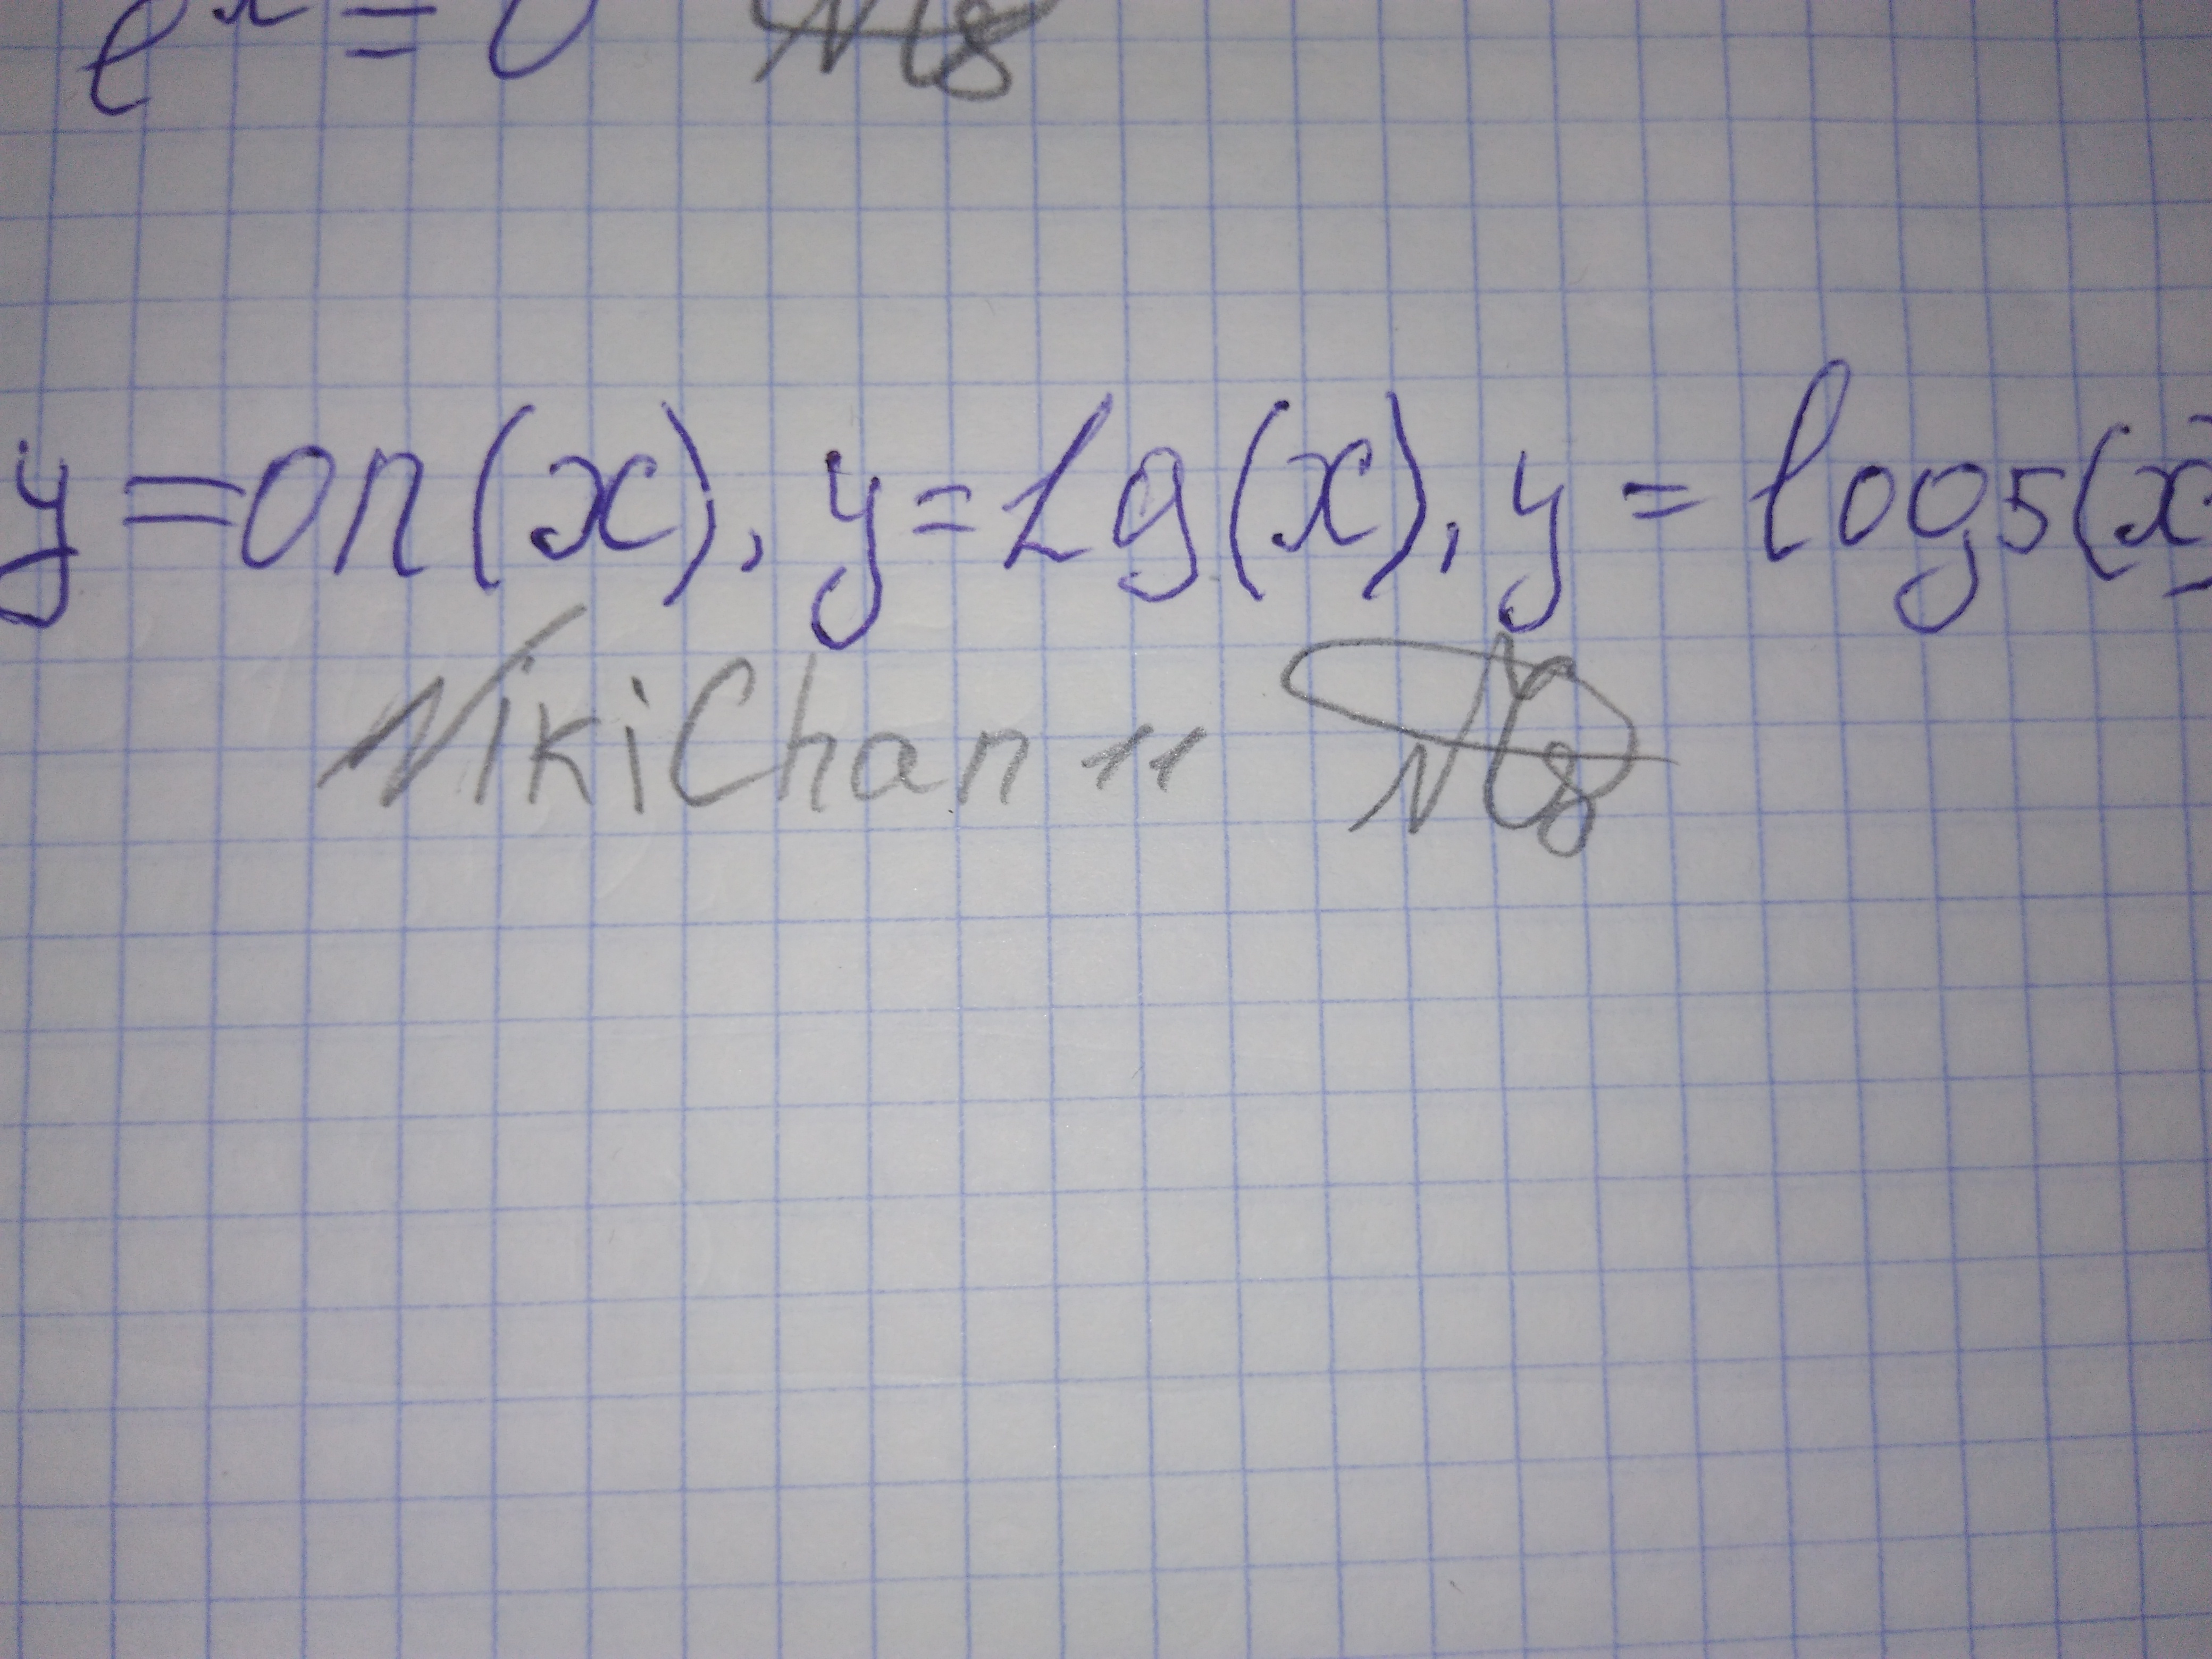 y=on(x), y=Lg(x), y=log5(x)
NikiChan11